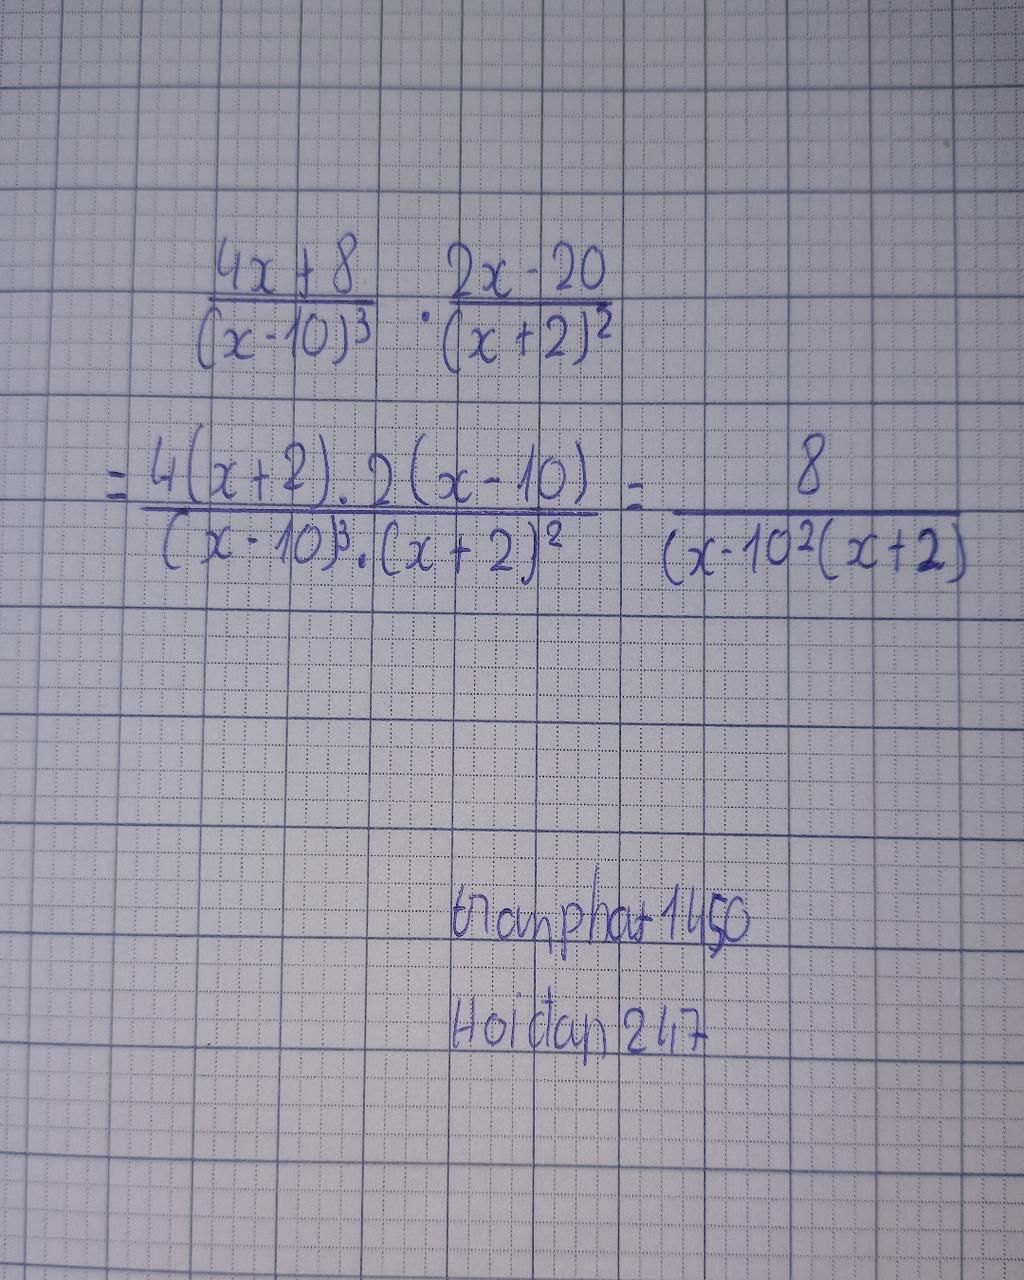 4x+8/(x-10)³ · 2x-20/(x+2)²
= 4(x+2).2(x-10)/(x-10)³.(x+2)² = 8/(x-10²(x+2)
tranphat1450
Hoidap247